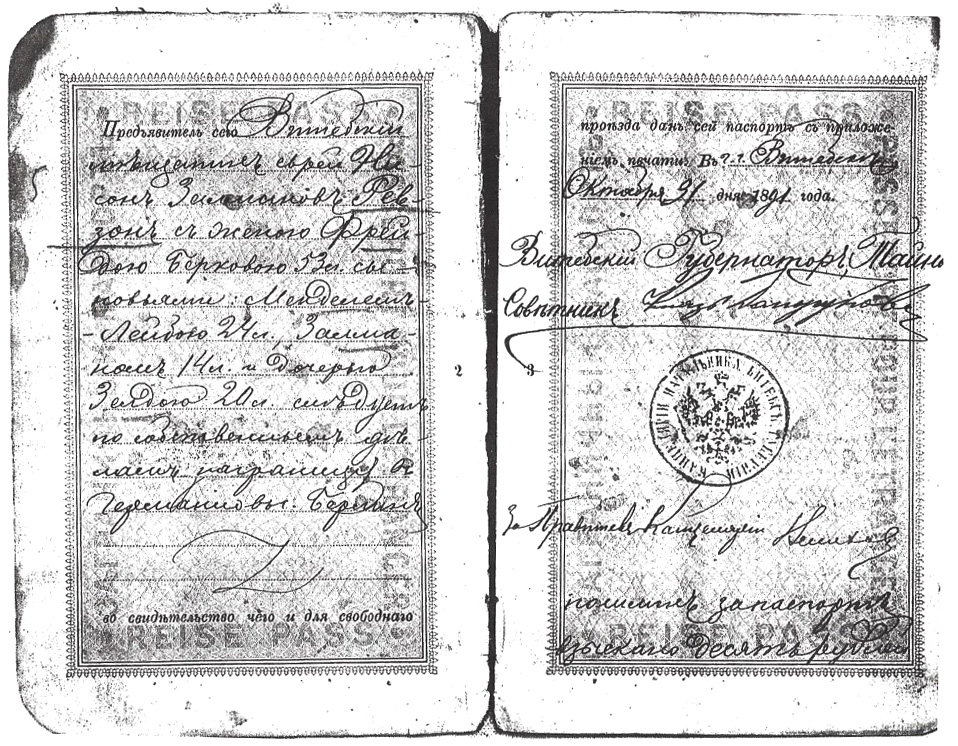 REISE PASS
Предъявитель сего Витебскій
мѣщанинъ еврей
сонъ Залмановъ Рев-
зонъ съ женою Фрей-
дою Берковою 53 л. сы-
новьями: Менделемъ-
-Лейбою 24 л., Залма-
номъ 14 л. и дочерью
Зелдою 20 л. слѣдуетъ
по собственнымъ дѣ-
ламъ заграницу
Берлинъ
во свидѣтельство чего и для свободнаго
REISE PASS
2
REISE PASS
проѣзда данъ сей паспортъ съ приложе-
ніемъ печати. Въ г. Витебскѣ
Октября 31 дня 1891 года.
Витебскій Губернаторъ, Тайн
Совѣтникъ Князь
3
КАНЦЕЛЯРІИ НАЧАЛЬНИКА ВИТЕБСК. ГУБЕРНІИ
За Правителя Канцеляріи
пошлинъ за паспортъ
взыскано десять рублей
REISE PASS